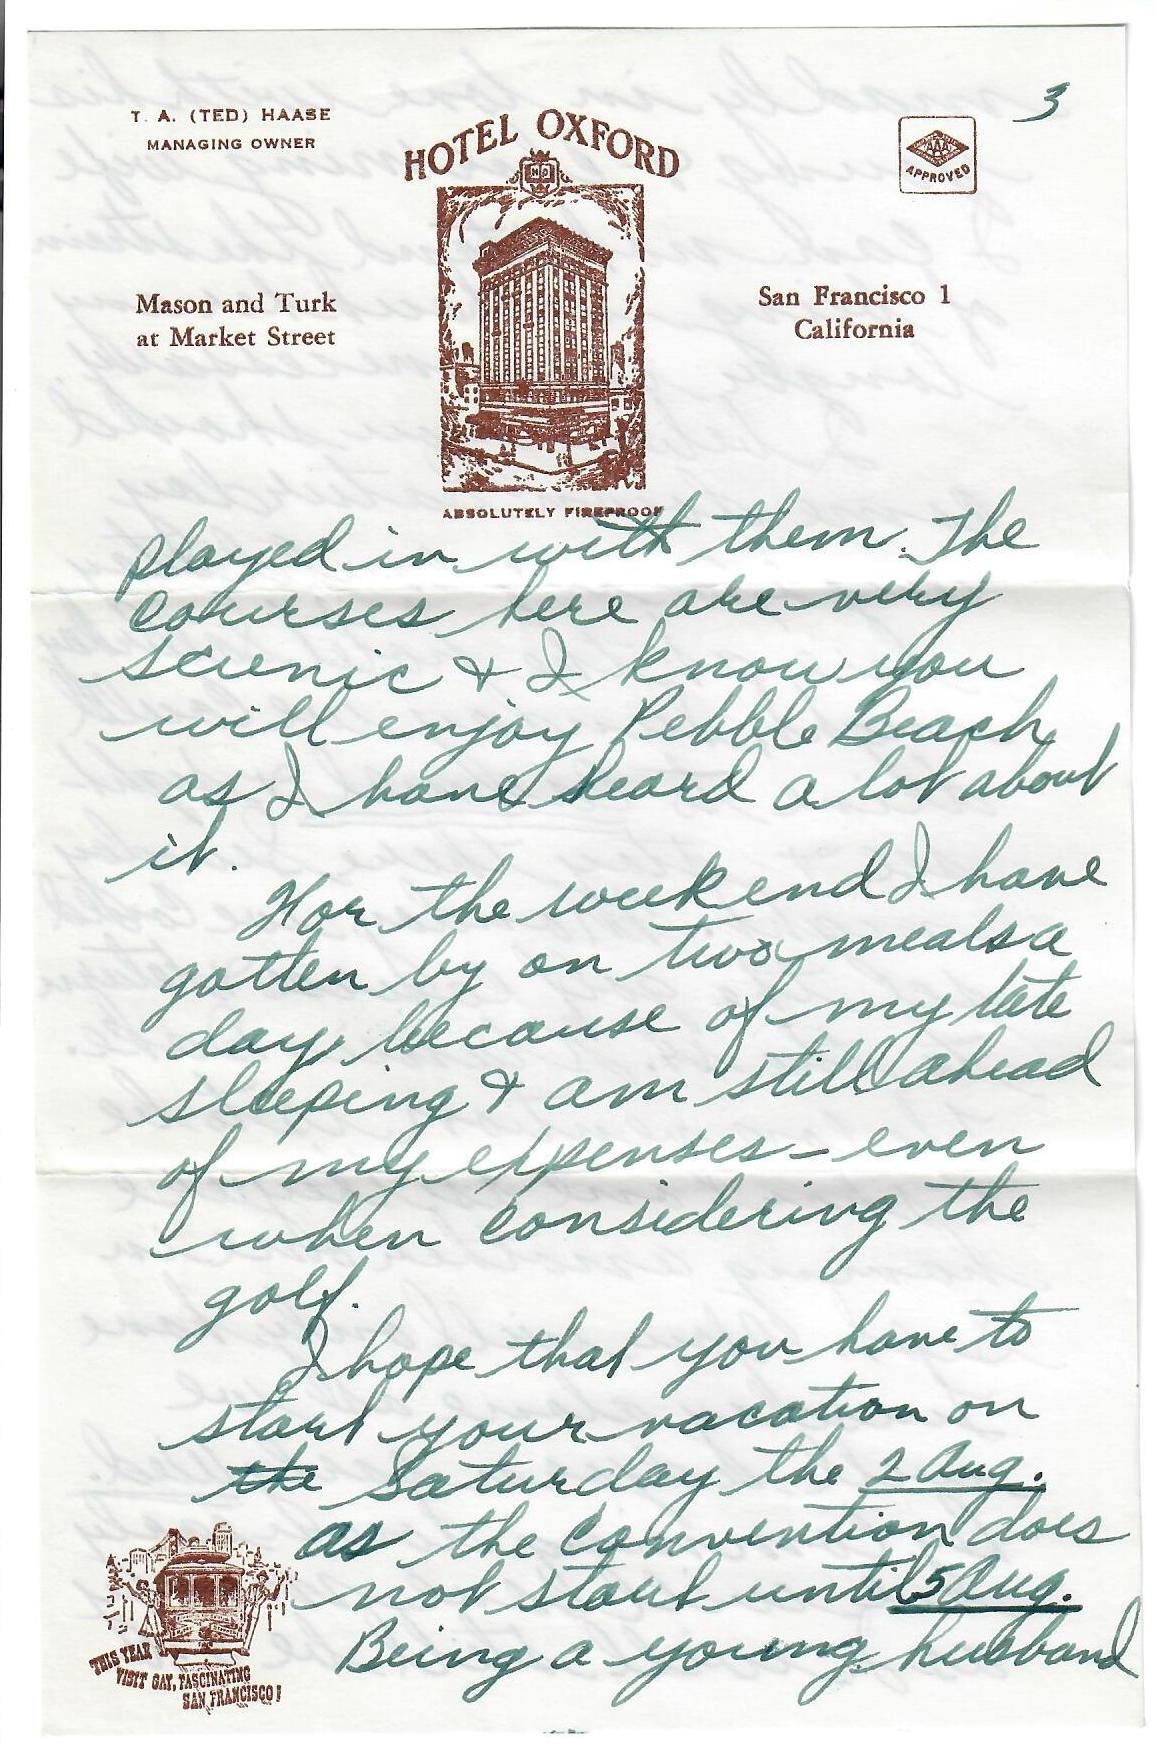 3
T. A. (TED) HAASE
MANAGING OWNER
HOTEL OXFORD
H O
AAA
APPROVED
Mason and Turk
at Market Street
San Francisco 1
California
ABSOLUTELY FIREPROOF
played in with them. The
courses here are very
scienic & I know you
will enjoy Pebble Beach
as I have heard a lot about
it.
For the weekend I have
gotten by on two meals a
day, because of my late
sleeping & am still ahead
of my expenses - even
when considering the
golf.
I hope that you have to
start your vacation on
the Saturday the 2 Aug.
as the convention does
not start until 5 Aug.
Being a young husband
THIS YEAR
VISIT GAY, FASCINATING
SAN FRANCISCO!